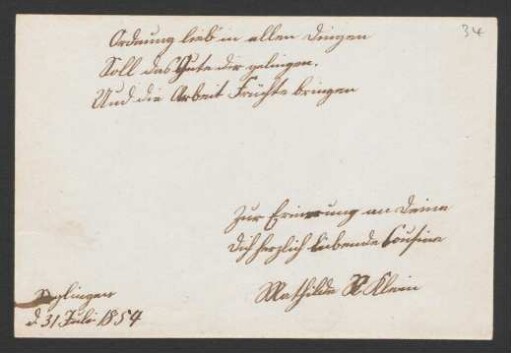 34
Ordnung lieb' in allen Dingen
Soll das Gute dir gelingen.
Und die Arbeit Früchte bringen
Zur Erinnerung an Deine
Dich herzlich liebende Cousine
Mathilde Klein
d 31 Juli 1854